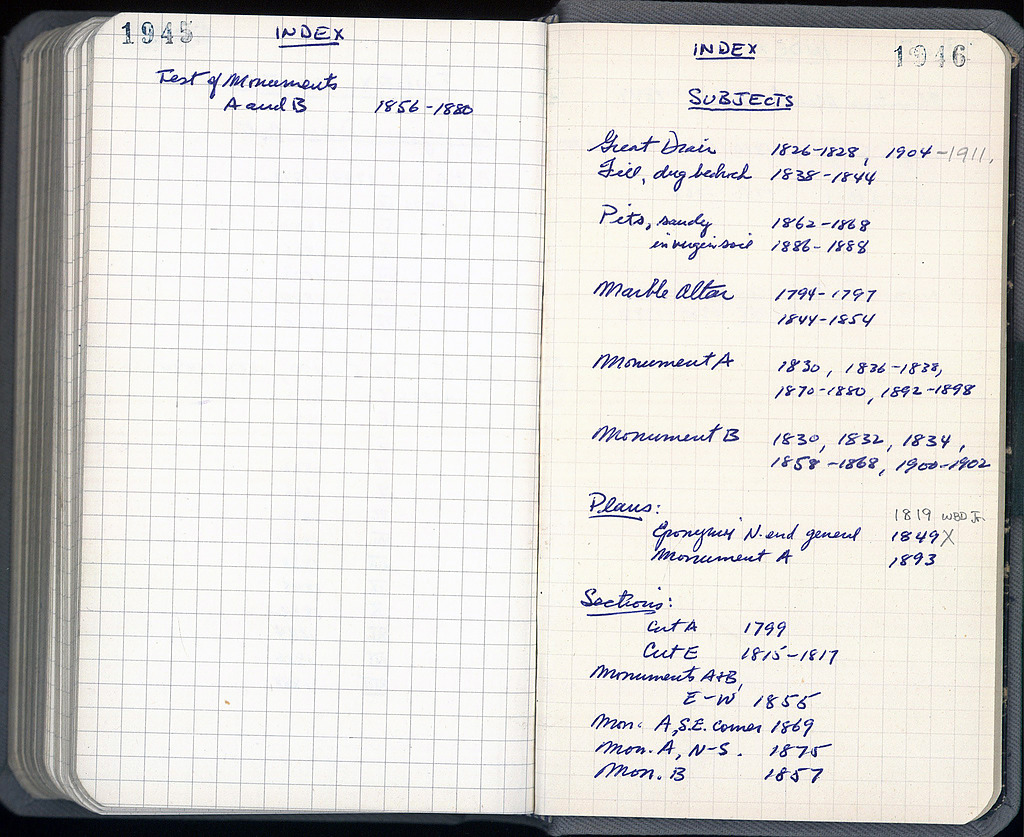 1945
INDEX
Test of Monuments
A and B 1856-1880
INDEX
1946
SUBJECTS
Great Drain 1826-1828, 1904-1911.
Fill, dug bedrock 1838-1844
Pits, sandy 1862-1868
in virgin soil 1886-1888
Marble Altar 1794-1797
1844-1854
Monument A 1830, 1836-1838,
1870-1880, 1892-1898
Monument B 1830, 1832, 1834,
1858-1868, 1900-1902
Plans:
1819 WBD Jr.
N. end general 1849X
Monument A 1893
Sections:
Cut A 1799
Cut E 1815-1817
Monuments A+B,
E-W 1855
Mon. A, S.E. corner 1869
Mon. A, N-S. 1875
Mon. B 1857